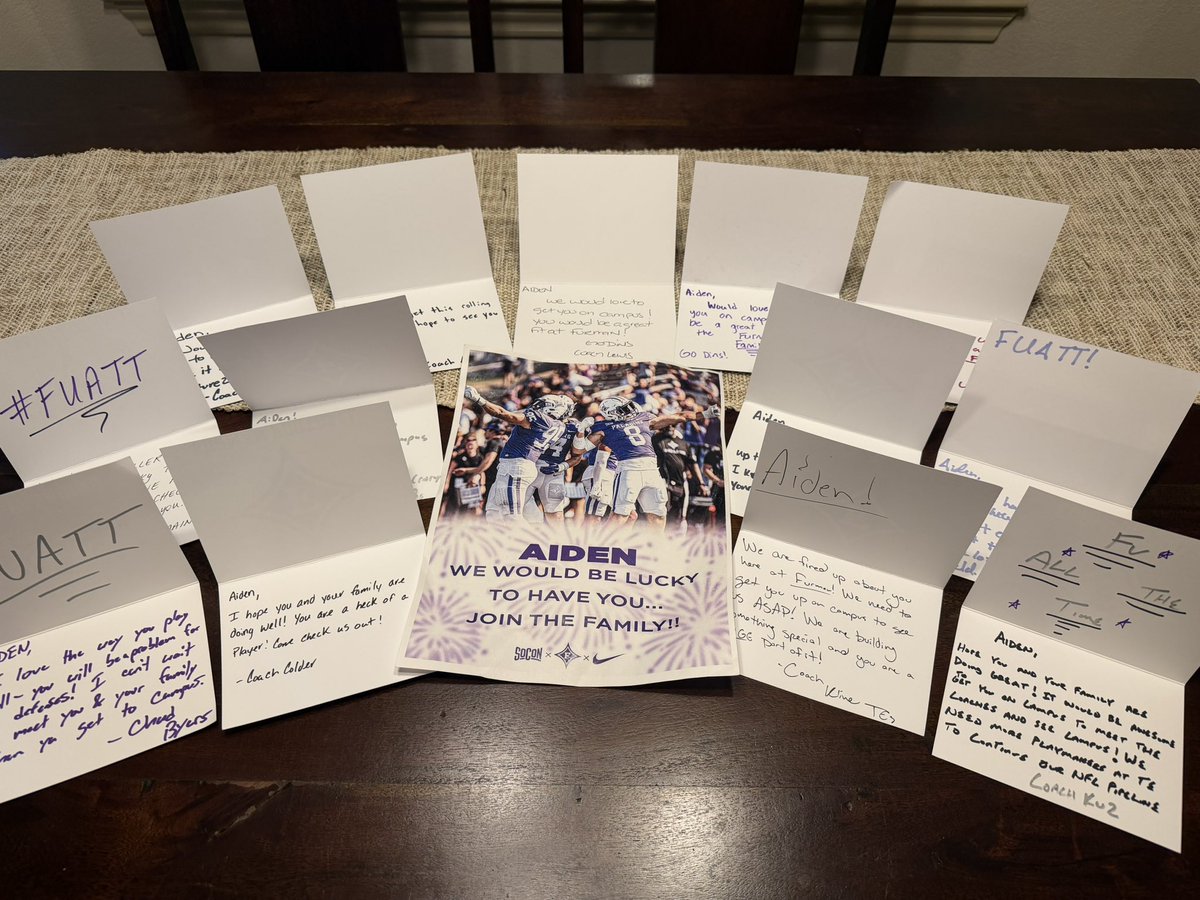 Aiden,
AIDEN
We would love to
get you on campus!
you would be a great
fit at Furman!
GO DINS
Coach Lewis
Aiden,
Would love
you on camp
be a great
the Furm
Family
GO DINS!
et this rolling
hope to see you
Coach
#FUATT
AiDen!
Aiden
up t
I K
your
FUATT!
Aiden,
UATT
DEN,
love the way you play
ll - you will be a problem for
defenses! I can't wait
meet you & your family
en ya get to campus.
- Chad
Byers
Aiden,
I hope you and your family are
doing well! You are a heck of a
Player! Come check us out!
- Coach Colder
PALADINS
8
AIDEN
WE WOULD BE LUCKY
TO HAVE YOU...
JOIN THE FAMILY!!
SOCON × ×
Aiden!
We are fired up about you
here at Furman! We need to
get you up on campus to see
us ASAP! We are building
something special and you are a
part of it!
FU
ALL
THE
TIME
AIDEN,
HOPE YOU AND YOUR FAMILY ARE
DOING GREAT! IT WOULD BE AWESOME
GET YOU ON CAMPUS TO MEET THE
COACHES AND SEE CAMPUS! WE
NEED MORE PLAYMAKERS AT TE
TO CONTINUE OUR NFL PIPELINE
COACH KUZ